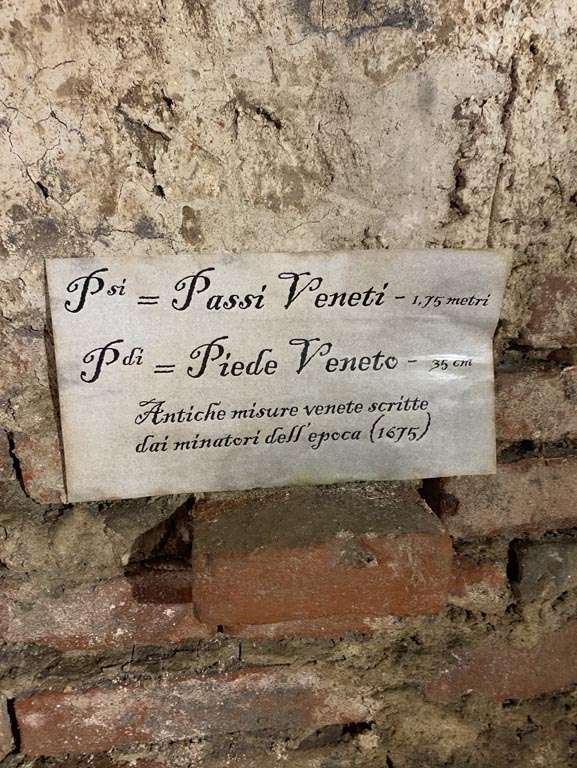 Psi = Passi Veneti - 1,75 metri
Pdi = Piede Veneto - 35 cm
Antiche misure venete scritte
dai minatori dell'epoca (1675)